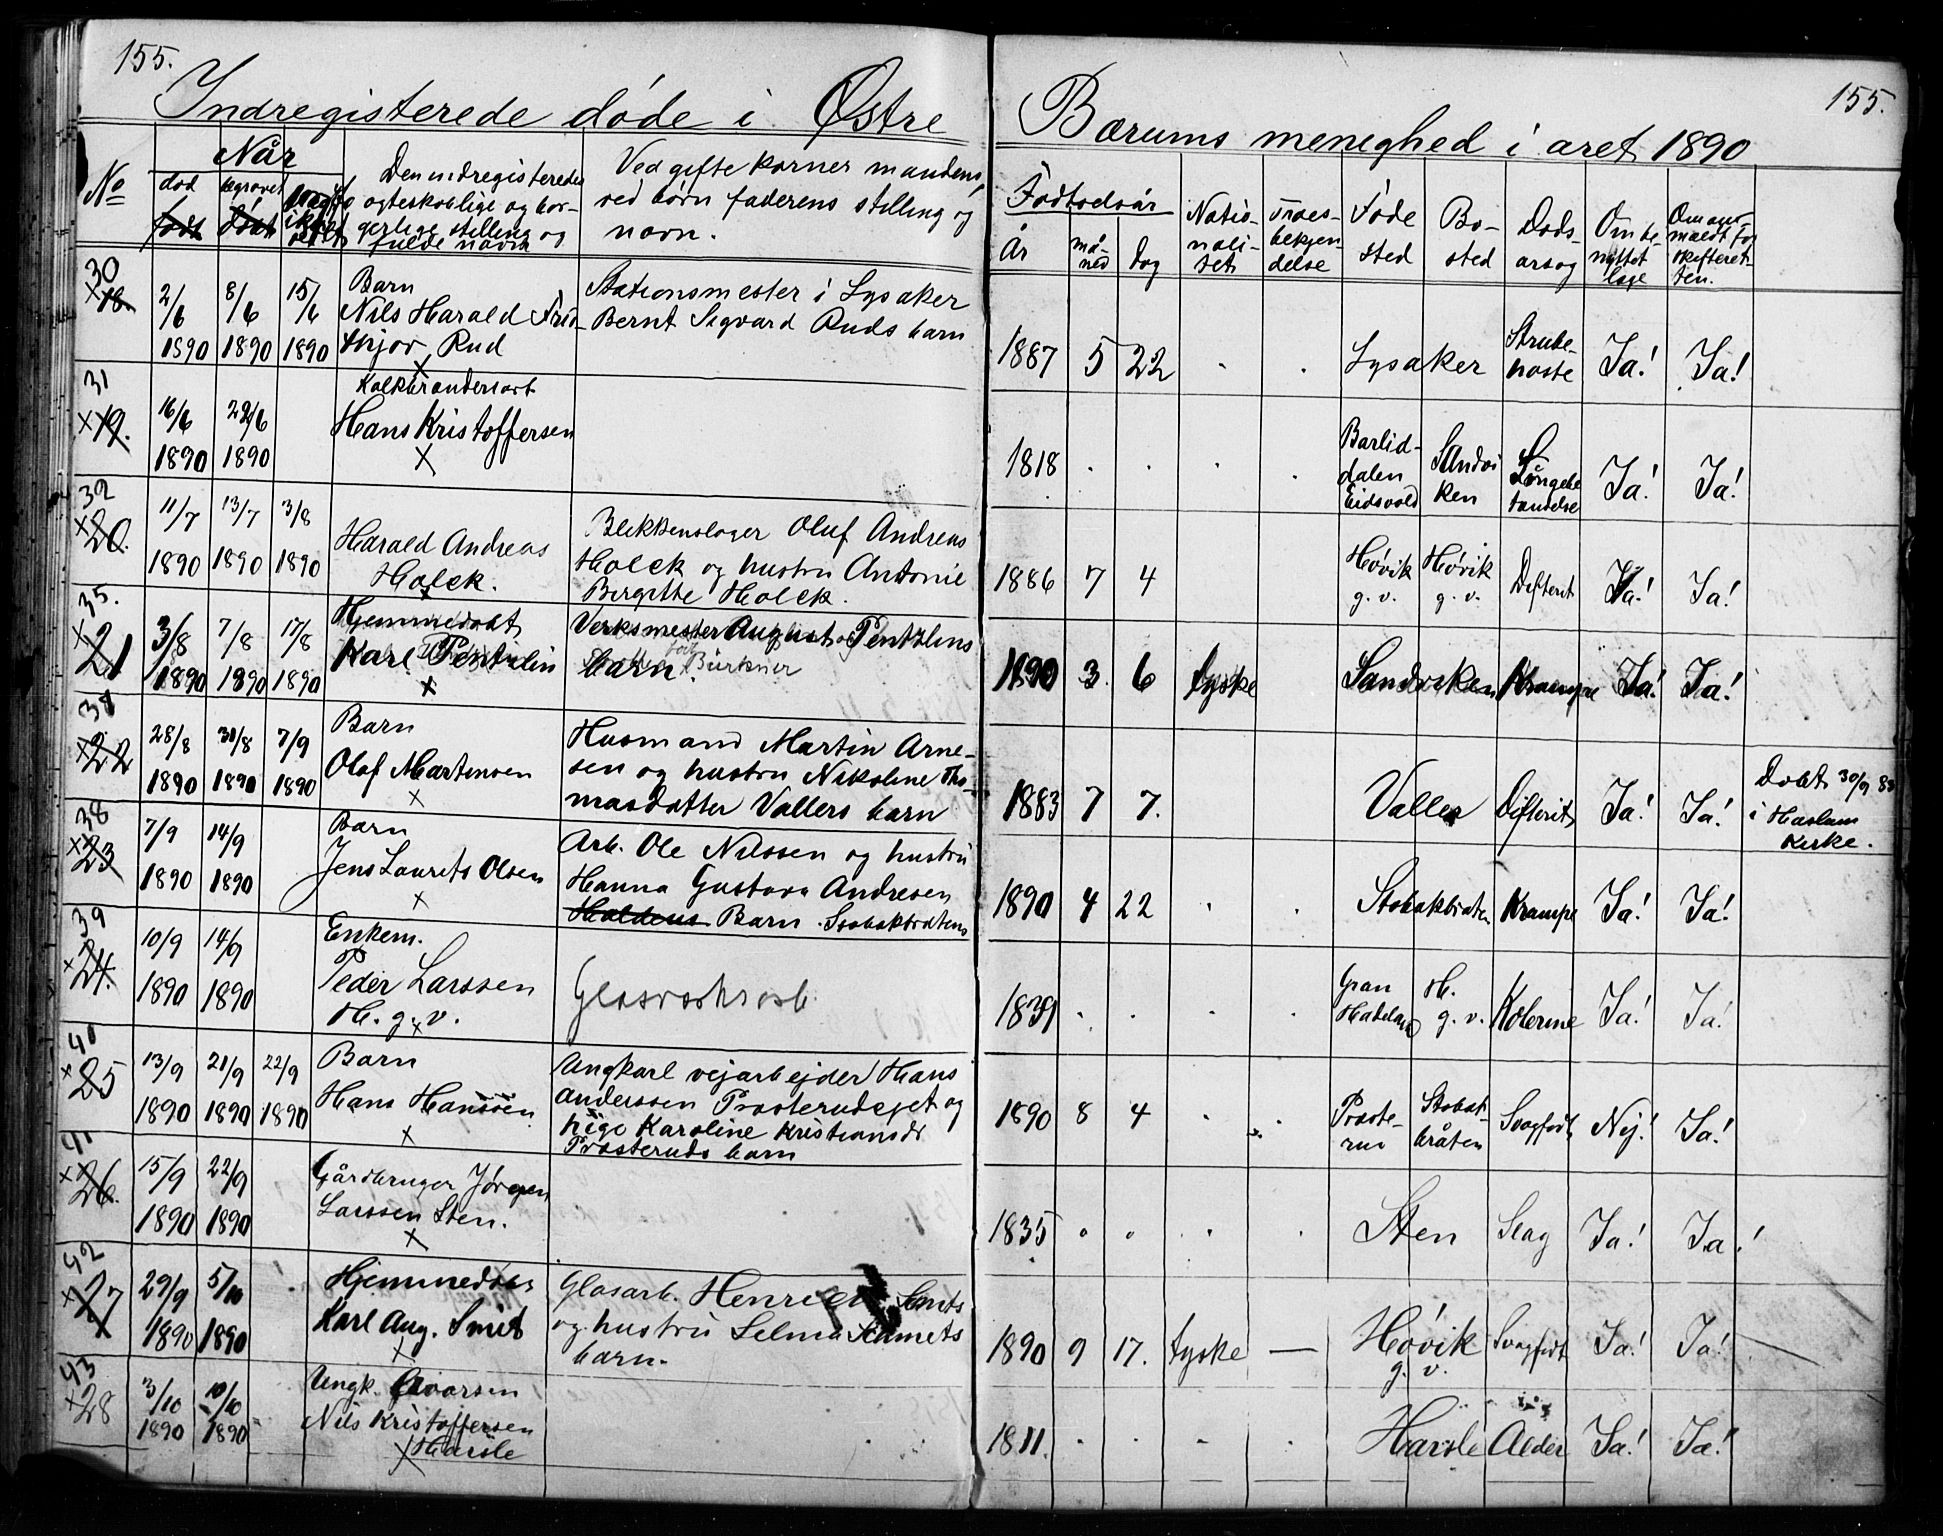 155.
155.
Indregisterede døde i Østre
Bærums menighed i året 1890
No
Når
død
begravet
Den indregisteredes
ægteskablige og bor-
gerlige stilling og
fulde navn
Ved gifte koner mandens,
ved børn faderens stilling og
navn.
Fødselsår
År
må-
ned
dag
Natio-
nali-
tet
Troes-
bekjen-
delse
Føde
sted
Bo-
sted
Døds-
årsag
Om be-
nyttet
læge
Om an-
meldt for
skifteret-
ten.
30
18.
2/6 8/6 15/6
1890 1890 1890
Barn
Nils Harald Frid-
thjov Rud
Stationsmester i Lysaker
Bernt Sigvard Ruds barn
1887 5 22
Lysaker
Strube-
hoste
Ja! Ja!
31
19.
16/6 22/6
1890 1890
Kalkbrænderarb
Hans Kristoffersen
1818
Barlid-
dalen
Eidsvold
Sandvi
ken
Lungebe
tændelse
Ja! Ja!
32
20.
11/7 13/7 3/8
1890 1890 1890
Harald Andreas
Holck.
Blikkenslager Oluf Andreas
Holck og hustru Antonie
Birgitte Holck.
1886 7 4
Høvik
g. v.
Høvik
g. v.
Difterit
Ja! Ja!
35.
21
3/8 7/8 17/8
1890 1890 1890
Hjemmedøbt
Karl Pentzlin
Verksmester August Pentzlins
barn. født Bürkner
1890 3 6 tyske
Sandviken Krampe Ja! Ja!
22
28/8 31/8 7/9
1890 1890 1890
Barn
Olaf Martinsen
Husmand Martin Arne-
sen og hustru Nikoline Tho-
masdatter Vallers barn
1883 7 7.
Valler Difterit Ja! Ja!
Døbt 30/9 83
i Haslum
Kirke.
38
23
7/9 14/9
1890 1890
Barn
Jens Laurits Olsen
Arb. Ole Nilssen og hustru
Hanna Gustava Andresen
Haldens Barn. Stabækbråtens
1890 4 22
Stabækbråten Krampe Ja! Ja!
39
24.
10/9 14/9
1890 1890
Enkem.
Peder Larssen
H. g. v.
Glasværksarb.
1839
Gran
Hadeland
H.
g. v.
Kolerine
Ja! Ja!
40
25
13/9 21/9 22/9
1890 1890 1890
Barn
Hans Hanssen
Ungkarl vejarbejder Hans
Anderssen Præsterudejet og
pige Karoline Kristiansdr
Præsteruds barn
1890 8 4
Præste-
rud
Stabæk
bråten
Svagfødt Nej! Ja!
41
26.
15/9 22/9
1890 1890
Gårdbruger Jørgen
Larssen Sten.
1835
Sten Slag Ja! Ja!
42
27
29/9 5/10
1890 1890
Hjemmedøbt
Karl Aug. Smit
Glasarb. Henrich Smits
og hustru Selma Schmits
barn.
1890 9 17. tyske —
Høvik
g. v.
Svagfødt Ja! Ja!
43
28
3/10 10/10
1890 1890
Ungk.
Nils Kristoffersen
Harsle
1811.
Harsle Alder Ja! Ja!